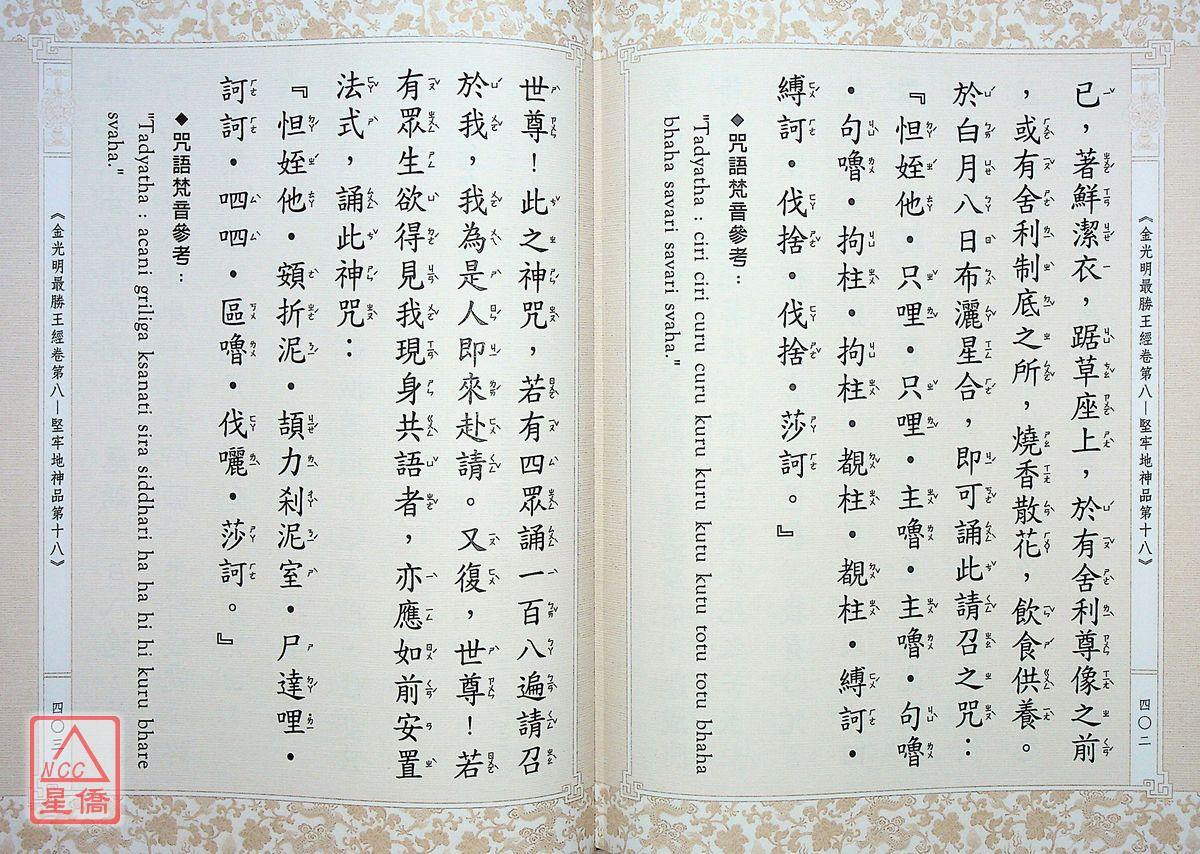 《金光明最勝王經卷第八—堅牢地神品第十八》
四〇二
已，著鮮潔衣，踞草座上，於有舍利尊像之前
，或有舍利制底之所，燒香散花，飲食供養。
於白月八日布灑星合，即可誦此請召之咒：
『怛姪他．只哩．只哩．主嚕．主嚕．句嚕
．句嚕．拘柱．拘柱．覩柱．覩柱．縛訶．
縛訶．伐捨．伐捨．莎訶。』
◆咒語梵音參考：
"Tadyatha : ciri ciri curu curu kuru kuru kutu kutu totu totu bhaha
bhaha savari savari svaha."
世尊！此之神咒，若有四眾誦一百八遍請召
於我，我為是人即來赴請。又復，世尊！若
有眾生欲得見我現身共語者，亦應如前安置
法式，誦此神咒：
『怛姪他．頞折泥．頡力剎泥室．尸達哩．
訶訶．呬呬．區嚕．伐囇．莎訶。』
◆咒語梵音參考：
"Tadyatha : acani griliga ksanati sira siddhari ha ha hi hi kuru bhare
svaha."
《金光明最勝王經卷第八—堅牢地神品第十八》
四〇三
NCC
星僑